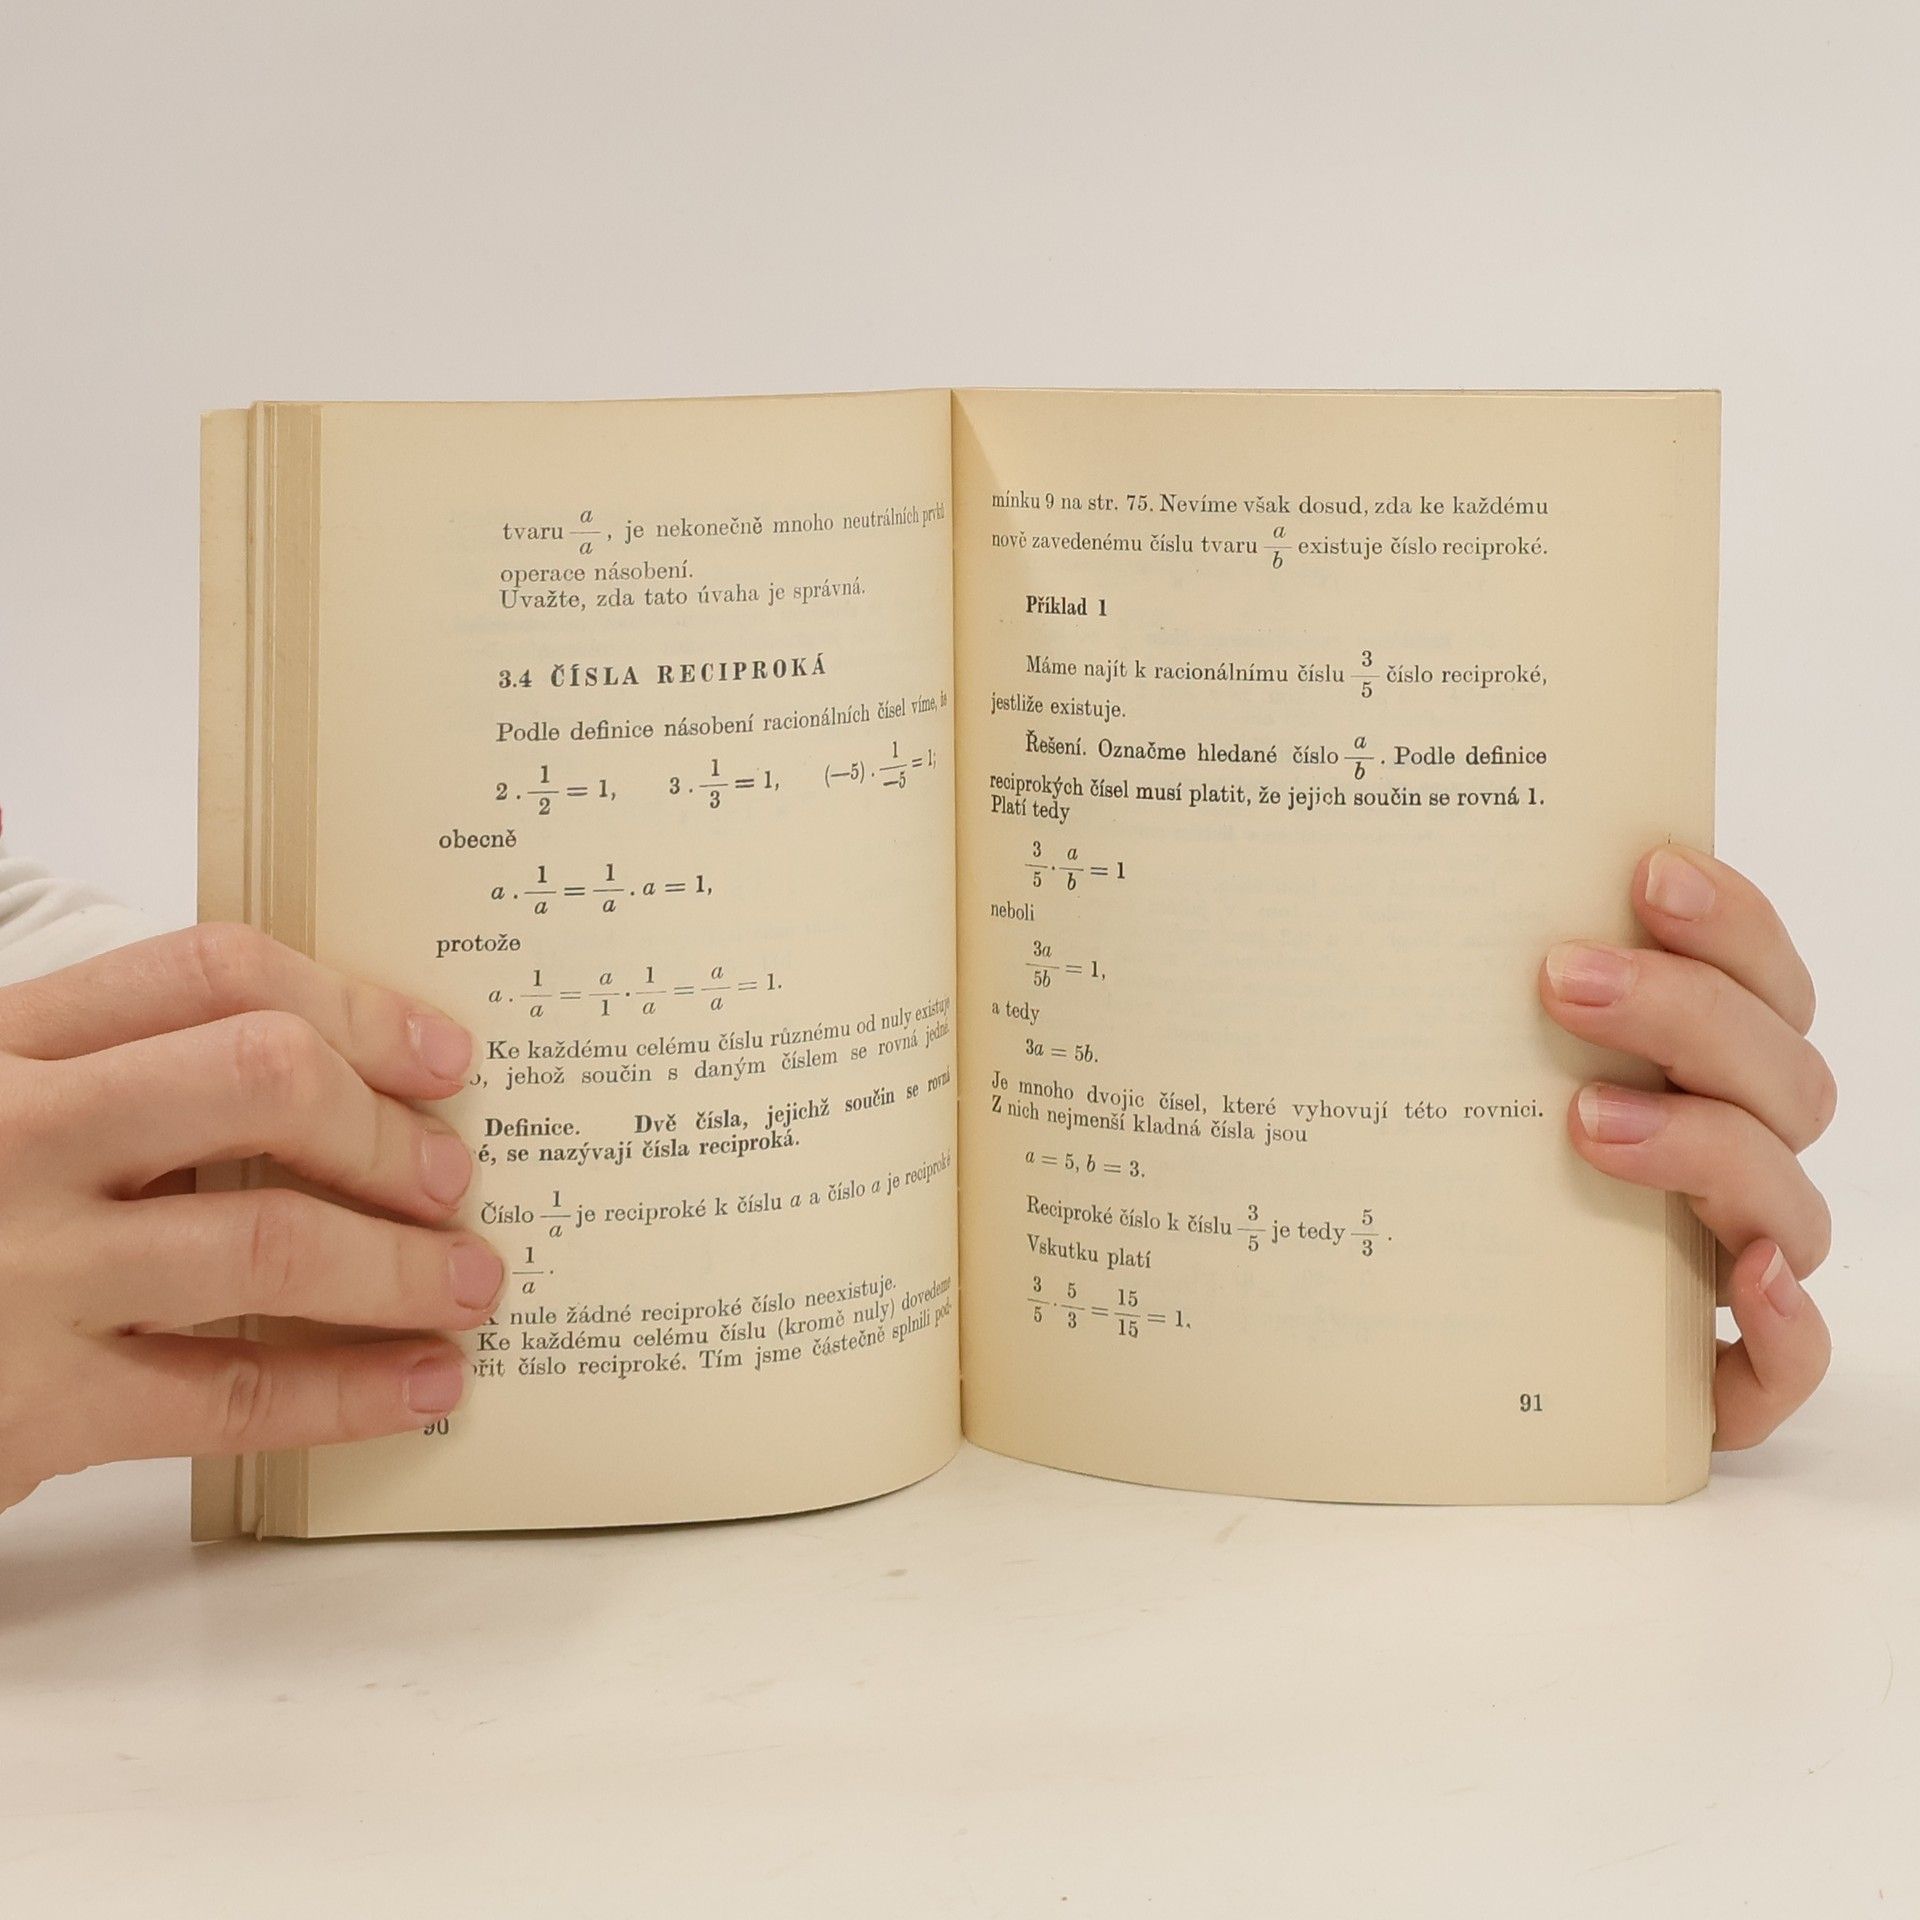 tvaru a/a, je nekonečně mnoho neutrálních prvků
operace násobení.
Uvažte, zda tato úvaha je správná.
3.4 ČÍSLA RECIPROKÁ
Podle definice násobení racionálních čísel víme, že
2 . 1/2 = 1, 3 . 1/3 = 1, (—5) . 1/—5 = 1;
obecně
a . 1/a = 1/a . a = 1,
protože
a . 1/a = a/1 . 1/a = a/a = 1.
Ke každému celému číslu různému od nuly existuje
jehož součin s daným číslem se rovná jedné.
Definice. Dvě čísla, jejichž součin se rovná
se nazývají čísla reciproká.
Číslo 1/a je reciproké k číslu a a číslo a je reciproké
1/a.
nule žádné reciproké číslo neexistuje.
Ke každému celému číslu (kromě nuly) dovedeme
číslo reciproké. Tím jsme částečně splnili pod-
90
mínku 9 na str. 75. Nevíme však dosud, zda ke každému
nově zavedenému číslu tvaru a/b existuje číslo reciproké.
Příklad 1
Máme najít k racionálnímu číslu 3/5 číslo reciproké,
jestliže existuje.
Řešení. Označme hledané číslo a/b. Podle definice
reciprokých čísel musí platit, že jejich součin se rovná 1.
Platí tedy
3/5 . a/b = 1
neboli
3a/5b = 1,
a tedy
3a = 5b.
Je mnoho dvojic čísel, které vyhovují této rovnici.
Z nich nejmenší kladná čísla jsou
a = 5, b = 3.
Reciproké číslo k číslu 3/5 je tedy 5/3.
Vskutku platí
3/5 . 5/3 = 15/15 = 1.
91